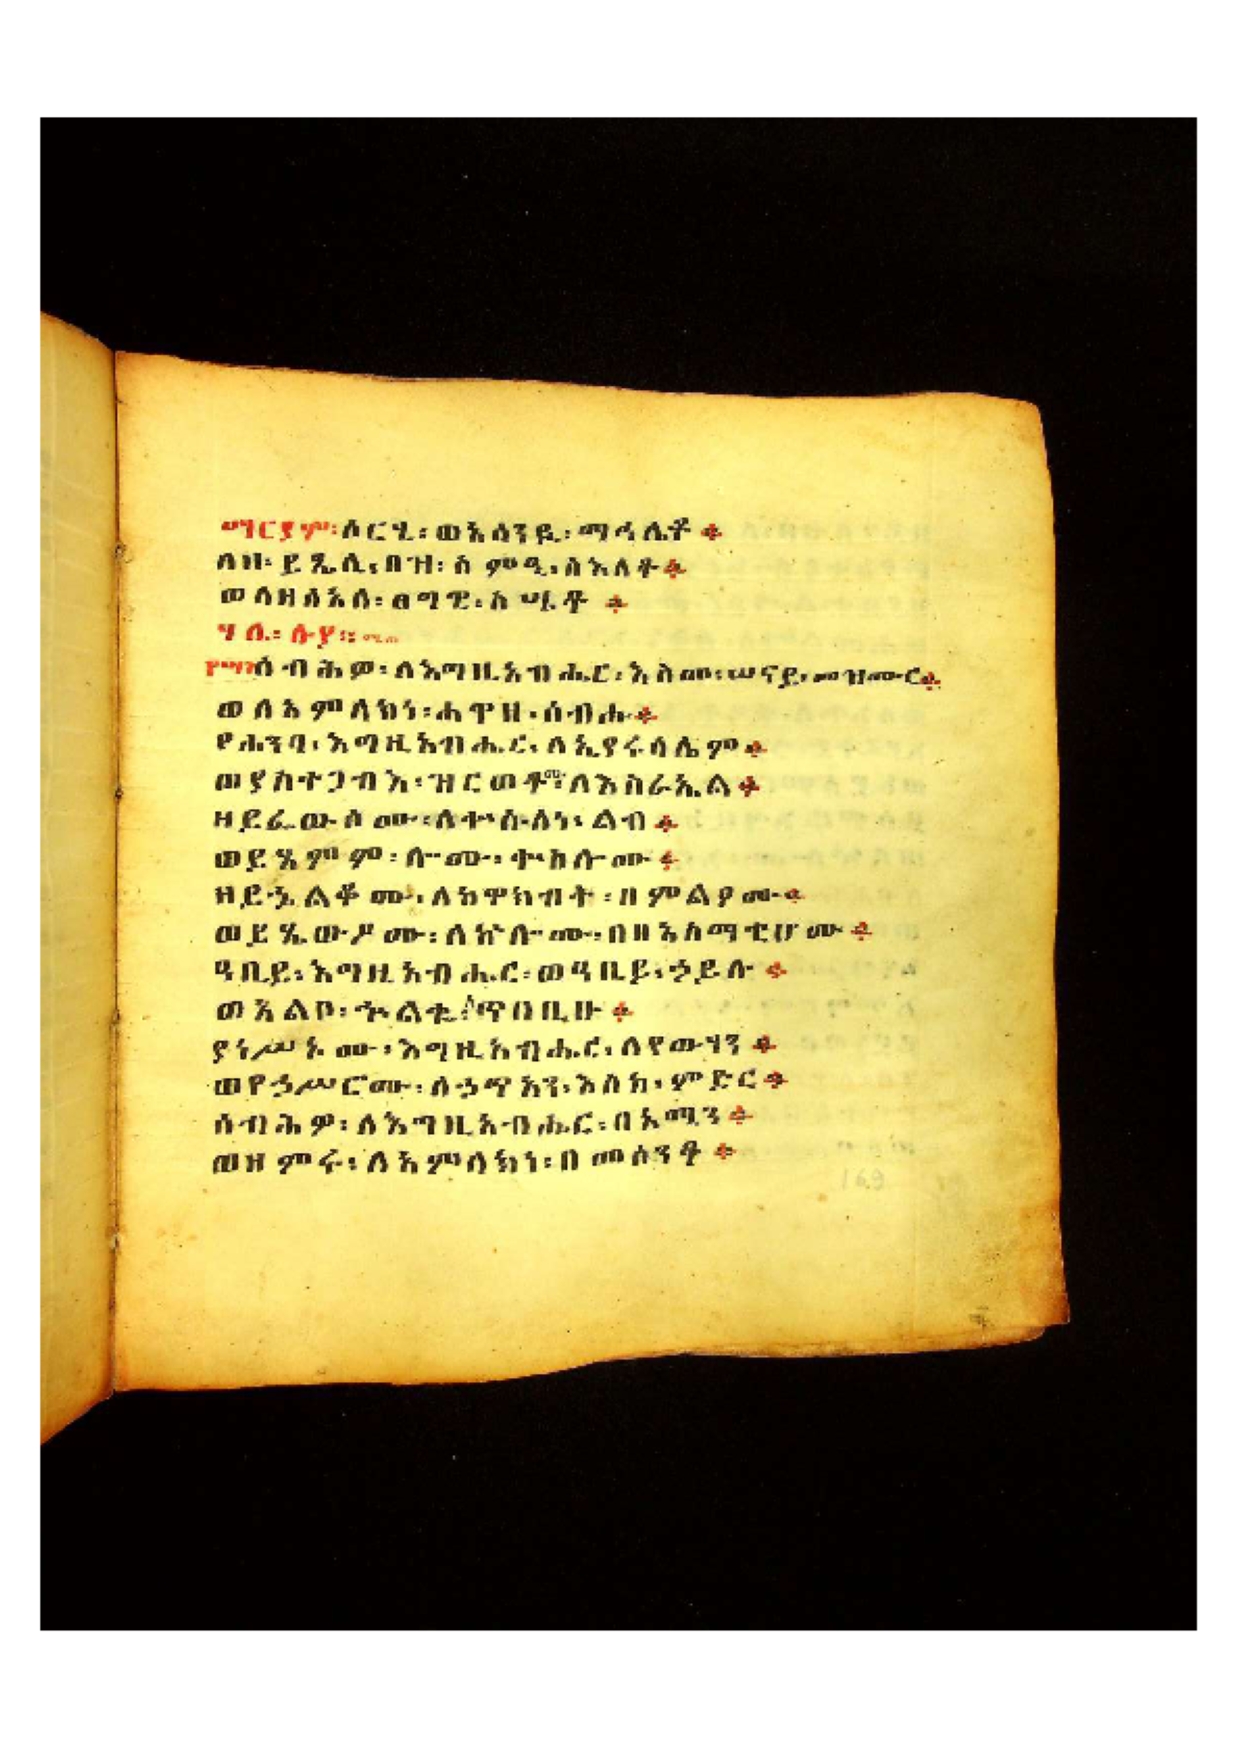 ማርያም፡ ሰርሂ፡ ወአሰንዪ፡ ማኅሌቶ ።
ለዘ፡ ይጼሊ፡ በዝ፡ ስምዒ፡ ስእለቶ ።
ወለዘ
ሃሌ፡ ሉያ ።
ሰብሕዎ፡ ለእግዚአብሔር፡ እስመ፡ ሠናይ፡ መዝሙር ።
ወለአምላክነ፡ ሐዋዘ፡ ሰብሐ ።
የሐንጻ፡ እግዚአብሔር፡ ለኢየሩሳሌም ።
ወያስተጋብእ፡ ዝርወቶሙ፡ ለእስራኤል ።
ዘይፌውሶሙ፡ ለቍስላነ፡ ልብ ።
ወይፄምም፡ ሎሙ፡ ቍስሎሙ ።
ዘይኌልቆሙ፡ ለከዋክብት፡ በምልዖሙ ።
ወይጼውዖሙ፡ ለኵሎሙ፡ በበአስማቲሆሙ ።
ዓቢይ፡ እግዚአብሔር፡ ወዓቢይ፡ ኃይሉ ።
ወአልቦ፡ ኍልቈ፡ ለጥበቢሁ ።
ያነሥኦሙ፡ እግዚአብሔር፡ ለየውሃን ።
ወየኃሥሮሙ፡ ለኃጥአን፡ እስከ፡ ምድር ።
ሰብሕዎ፡ ለእግዚአብሔር፡ በአሚን ።
ወዘምሩ፡ ለአምላክነ፡ በመሰንቆ ።
169